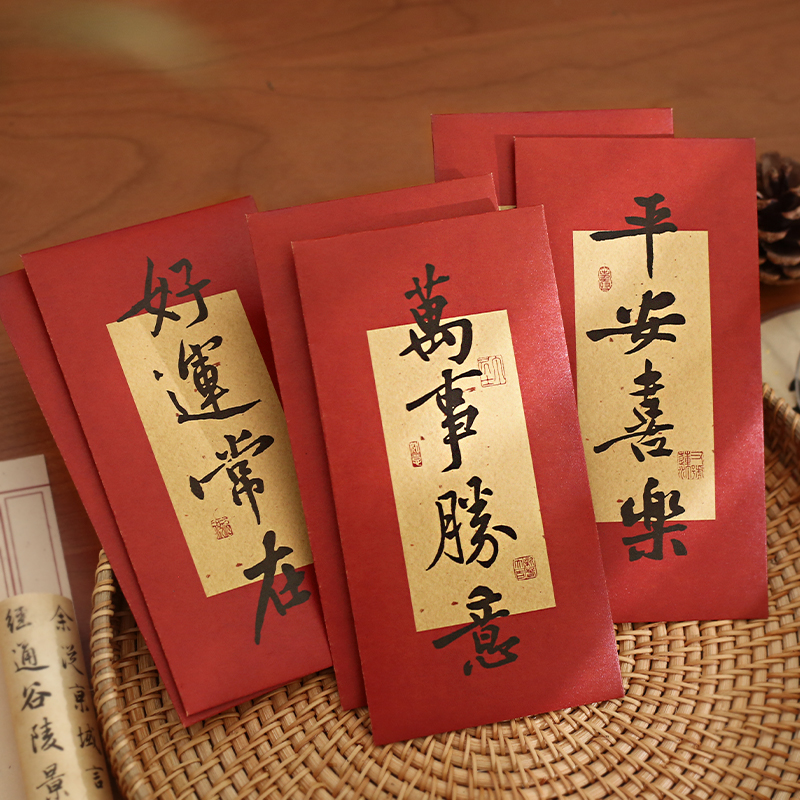 好運常在
萬事勝意
平安喜樂
經通谷陵景